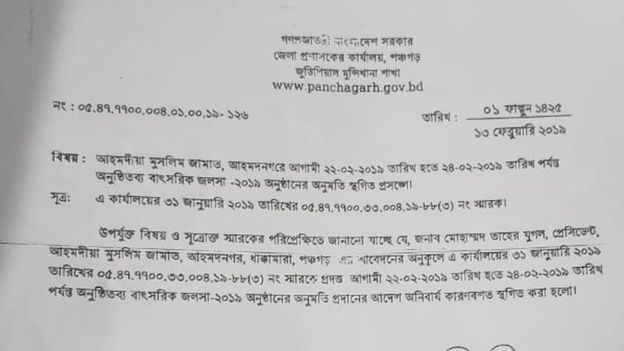 গণপ্রজাতন্ত্রী বাংলাদেশ সরকার
জেলা প্রশাসকের কার্যালয়, পঞ্চগড়
জুডিশিয়াল মুন্সিখানা শাখা
www.panchagarh.gov.bd
নং : ০৫.৪৭.৭৭০০.০০৪.০১.০০.১৯- ১২৬
তারিখ :
০১ ফাল্গুন ১৪২৫
১৩ ফেব্রুয়ারি ২০১৯
বিষয় : আহমদীয়া মুসলিম জামাত, আহমদনগরে আগামী ২২-০২-২০১৯ তারিখ হতে ২৪-০২-২০১৯ তারিখ পর্যন্ত
অনুষ্ঠিতব্য বাৎসরিক জলসা -২০১৯ অনুষ্ঠানের অনুমতি স্থগিত প্রসঙ্গে।
সূত্র: এ কার্যালয়ের ৩১ জানুয়ারি ২০১৯ তারিখের ০৫.৪৭.৭৭০০.৩৩.০০৪.১৯-৮৮(৩) নং স্মারক।
উপর্যুক্ত বিষয় ও সূত্রোক্ত স্মারকের পরিপ্রেক্ষিতে জানানো যাচ্ছে যে, জনাব মোহাম্মদ তাহের যুগল, প্রেসিডেন্ট,
আহমদীয়া মুসলিম জামাত, আহমদনগর, ধাক্কামারা, পঞ্চগড় এর আবেদনের অনুকূলে এ কার্যালয়ের ৩১ জানুয়ারি ২০১৯
তারিখের ০৫.৪৭.৭৭০০.৩৩.০০৪.১৯-৮৮(৩) নং স্মারকে প্রদত্ত আগামী ২২-০২-২০১৯ তারিখ হতে ২৪-০২-২০১৯ তারিখ
পর্যন্ত অনুষ্ঠিতব্য বাৎসরিক জলসা-২০১৯ অনুষ্ঠানের অনুমতি প্রদানের আদেশ অনিবার্য কারণবশত স্থগিত করা হলো।